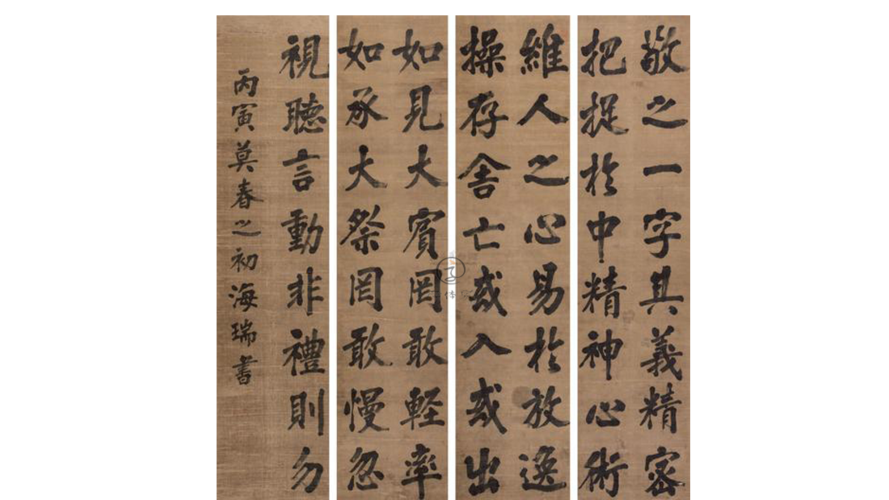 敬之一字其義精密
把捉於中精神心術
維人之心易於放逸
操存舍亡或入或出
如見大賓罔敢軽率
如承大祭罔敢慢忽
視聴言動非禮則勿
丙寅莫春之初海瑞書